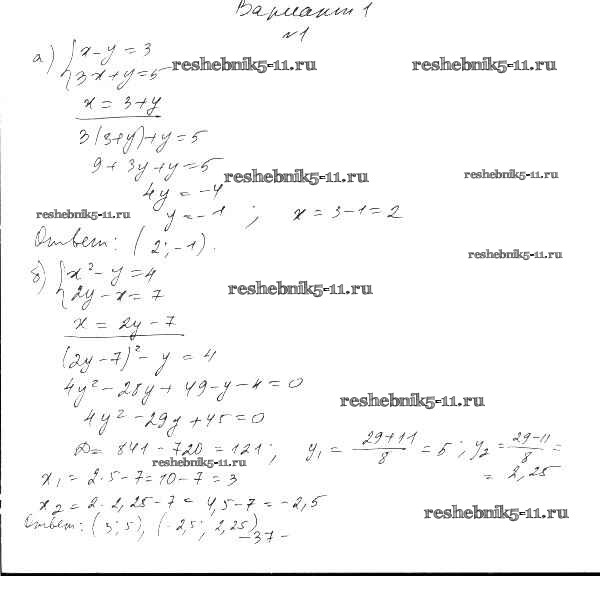 Вариант 1
№1
а) { x - y = 3
3x + y = 5
reshebnik5-11.ru reshebnik5-11.ru
x = 3 + y
3(3+y) + y = 5
9 + 3y + y = 5
reshebnik5-11.ru reshebnik5-11.ru
4y = -4
reshebnik5-11.ru
y = -1 ; x = 3 - 1 = 2
Ответ: (2; -1).
reshebnik5-11.ru
б) { x² - y = 4
2y - x = 7
reshebnik5-11.ru
x = 2y - 7
(2y - 7)² - y = 4
4y² - 28y + 49 - y - 4 = 0
reshebnik5-11.ru
4y² - 29y + 45 = 0
D = 841 - 720 = 121; y₁ = (29+11)/8 = 5; y₂ = (29-11)/8 =
= 2,25
reshebnik5-11.ru
x₁ = 2·5 - 7 = 10 - 7 = 3
x₂ = 2·2,25 - 7 = 4,5 - 7 = -2,5
reshebnik5-11.ru
Ответ: (3; 5), (-2,5; 2,25)
- 37 -